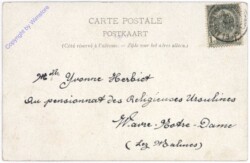 CARTE POSTALE
POSTKAART
(Côté réservé à l'adresse. — Zijde voor het adres alleen.)
Melle Yvonne Herbiet
Au pensionnat des Religieuses Ursulines
Wavre-Notre-Dame
(Lez Malines)